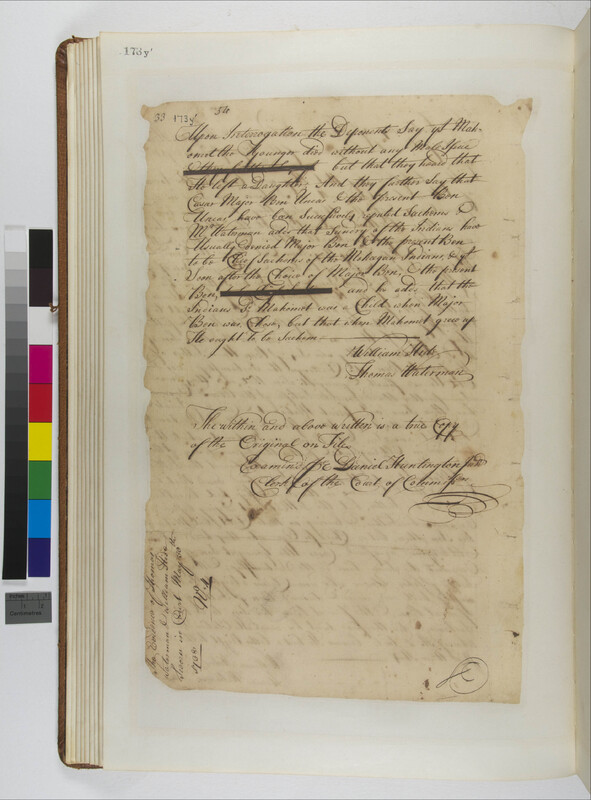 173y
33 173y 54
Upon Interrogation the Deponents Say yt Mah-
omet the Younger died without any Male Issue
but that they heard that
He left a Daughter And they further Say that
Cæsar Major Ben Uncas & the present Ben
Uncas have ben Successively Sachems &
Mr Waterman ads that Sundry of the Indians have
Usually Denied Major Ben & the present Ben
to be Chief Sachems of the Mohegan Indians, & yt
Soon after the Choice of Major Ben, & the present
Ben, and he adds that the
Indians Sd Mahomet was a Child when Major
Ben was Chose, but that when Mahomet grew up
He ought to be Sachem
William
Thomas Waterman
The within and above written is a true Copy
of the Original on File
Examined Pr Daniel Huntington
Clerk of the Court of Commissrs
The Evidence of Thomas
Waterman & William
Sworn in Court May
1738
No 4